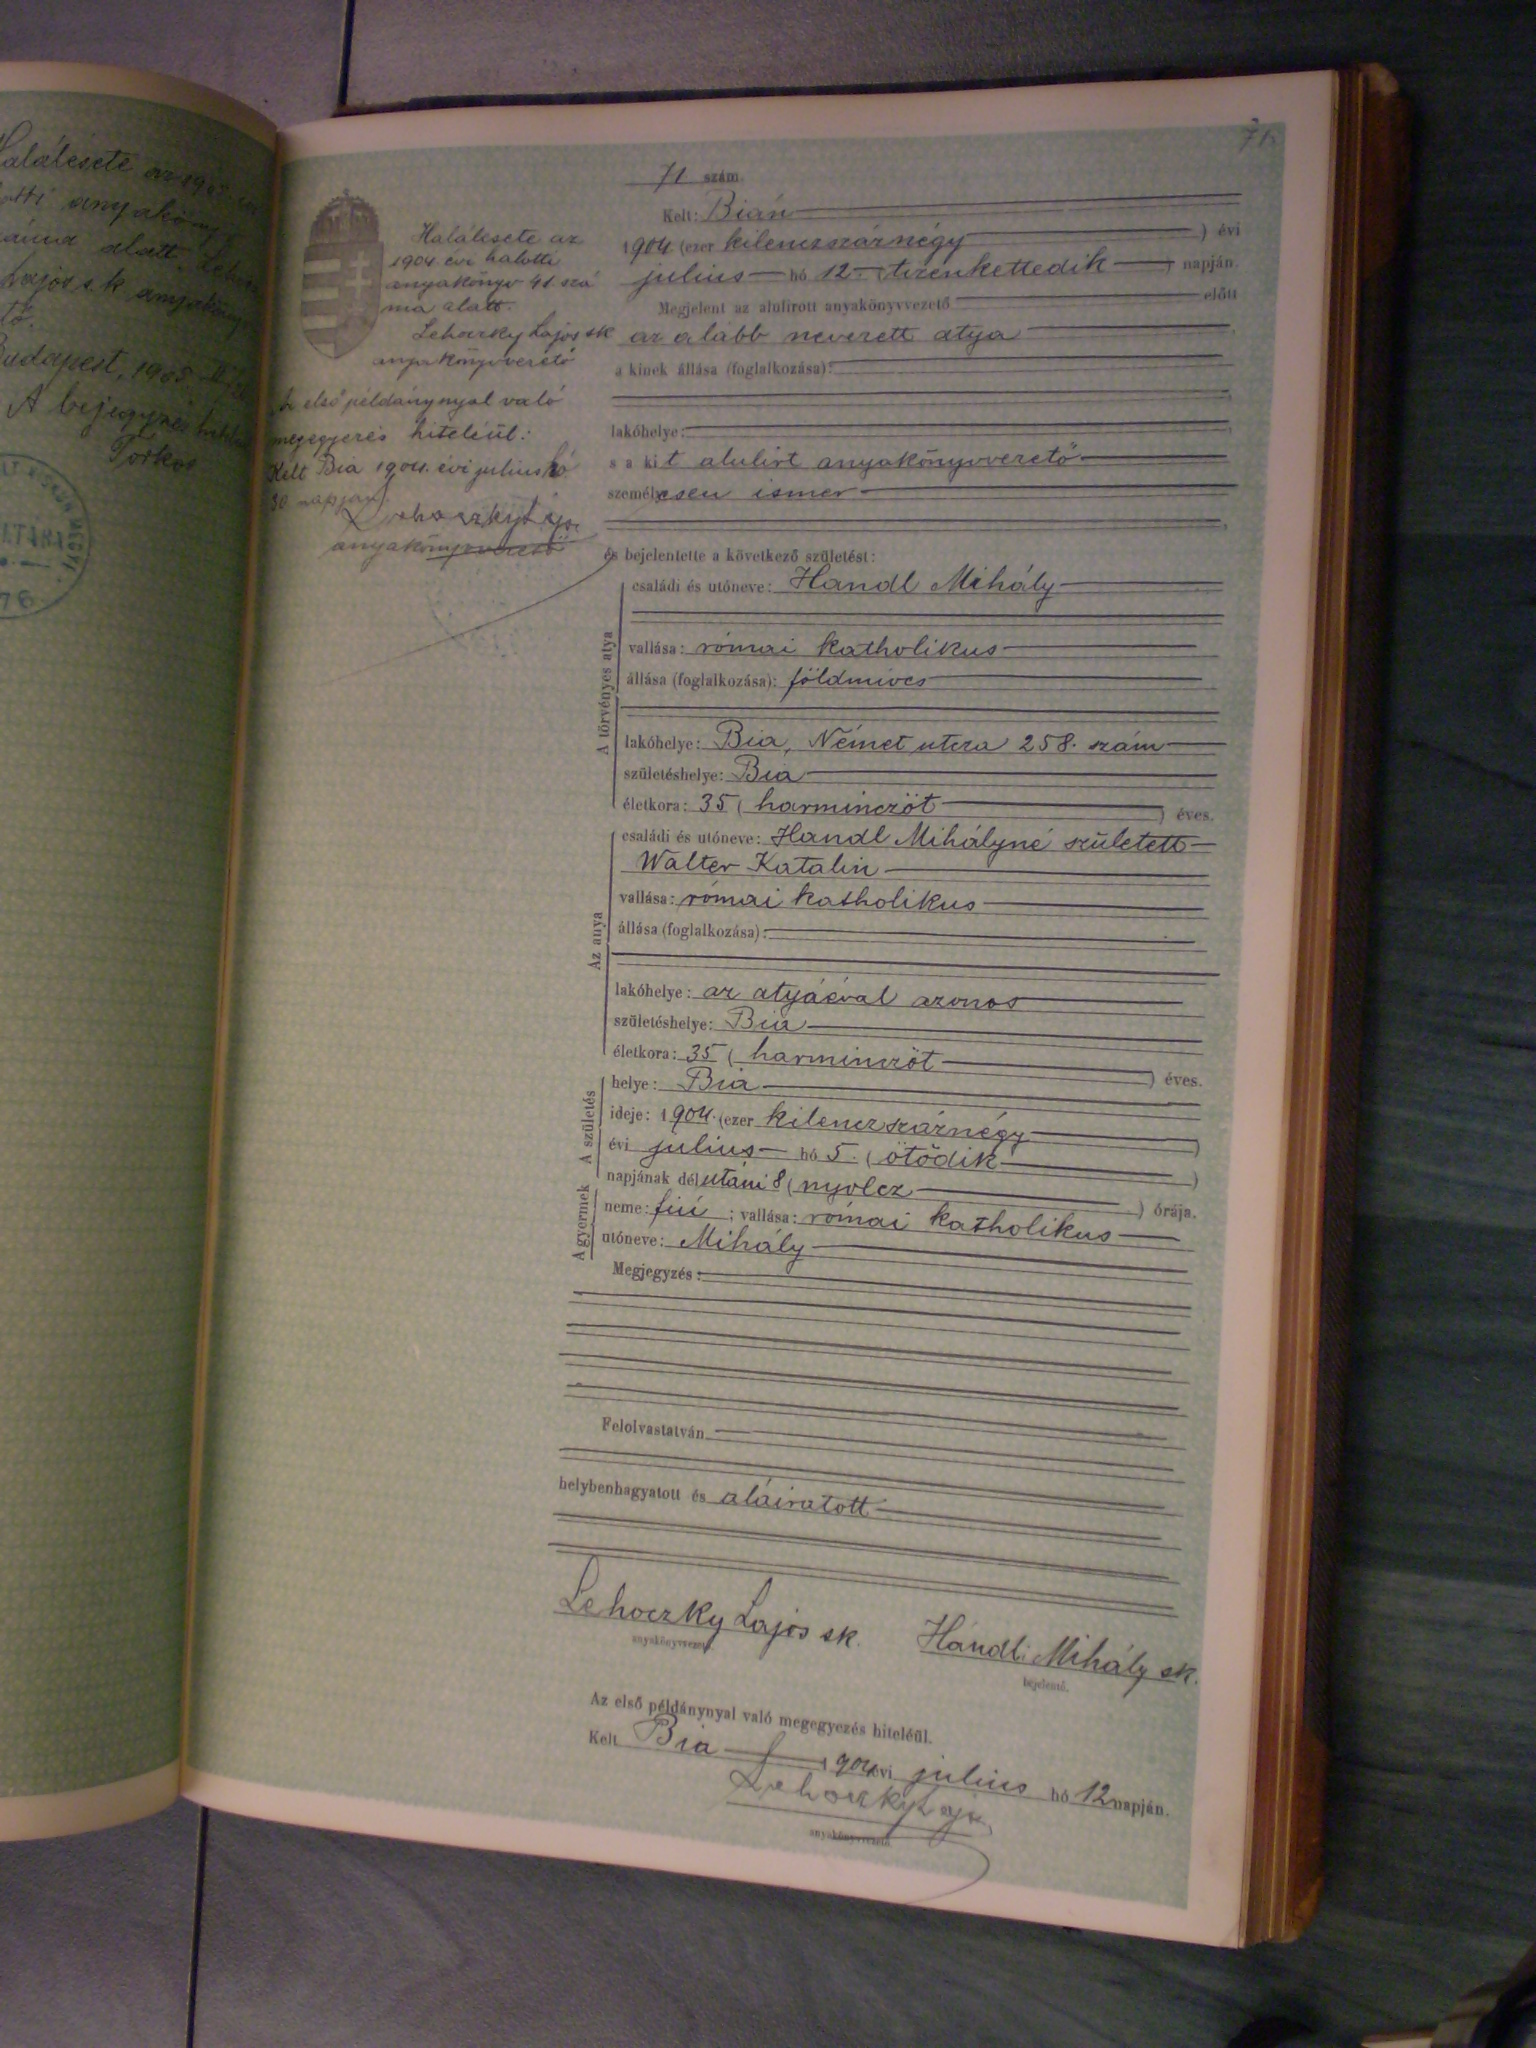 Halálesete az 190
anyakönyv
alatt. Lehoczky
Lajos s.k. anyakönyv
tő.
Budapest, 1905.
A bejegyzés
Torkos
76
71
71 szám.
Kelt: Bián
1904 (ezer kilenczszáznégy) évi
julius hó 12. (tizenkettedik) napján.
Megjelent az alulirott anyakönyvvezető előtt
az alább nevezett atya
a kinek állása (foglalkozása):
lakóhelye:
s a kit alulirt anyakönyvvezető
személyesen ismer
és bejelentette a következő születést:
A törvényes atya
családi és utóneve: Handl Mihály
vallása: római katholikus
állása (foglalkozása): földmives
lakóhelye: Bia, Német utcza 258. szám
születéshelye: Bia
életkora: 35 (harminczöt) éves.
Az anya
családi és utóneve: Handl Mihályné született
Walter Katalin
vallása: római katholikus
állása (foglalkozása):
lakóhelye: az atyáéval azonos
születéshelye: Bia
életkora: 35 (harminczöt) éves.
A születés
helye: Bia
ideje: 1904. (ezer kilenczszáznégy)
évi julius hó 5. (ötödik)
napjának délutáni 8 (nyolcz) órája.
A gyermek
neme: fiú; vallása: római katholikus
utóneve: Mihály
Megjegyzés:
Felolvastatván
helybenhagyatott és aláiratott
Lehoczky Lajos sk. Handl Mihály sk.
anyakönyvvezető. bejelentő.
Az első példánynyal való megegyezés hiteléül.
Kelt Bia 1904 évi julius hó 12 napján.
Lehoczky Lajos
anyakönyvvezető.
Halálesete az
1904. évi halotti
anyakönyv 41 szá
ma alatt.
Lehoczky Lajos sk
anyakönyvvezető
Az első példánynyal való
megegyezés hiteléül:
Kelt Bia 1904. évi julius hó
30 napján.
Lehoczky Lajos
anyakönyvvezető